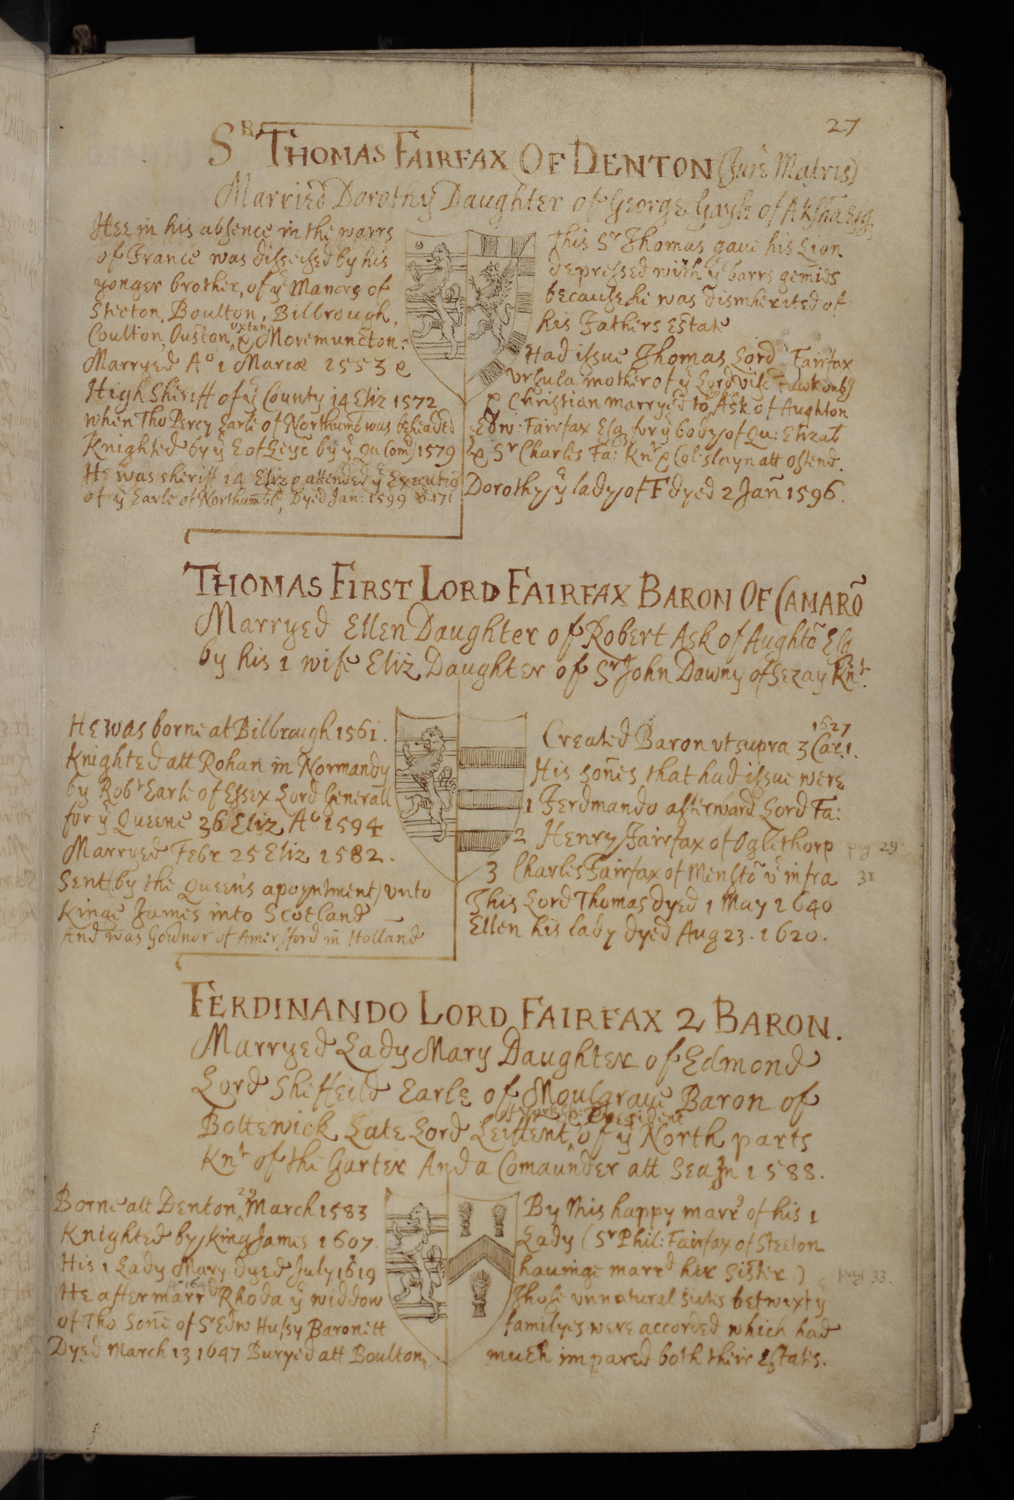 27
Sr THOMAS FAIRFAX OF DENTON (Jure Matris)
Married Dorothy Daughter of George Gayle of Aksha Esq
Hee in his absence in the warrs
of France was disseised by his
yonger brother, of ye Manors of
Steeton, Boulton, Bilbrough,
Coulton, Ouston, Oxton & Movemuncton.
Marryed Ao 1 Mariæ 1553 &
High Sheriff of ye County 14 Eliz 1572
when Tho Percy Earle of Northumb was beheaded
Knighted by ye E of by ye Qu Com) 1579
He was sheriff 14 Eliz & attended ye Executio
of ye Earle of Northumbl, Dyed Jan: 1599
This Sr Thomas gave his Lion
depressed with ye barrs gemies
because he was disinherited of
his Fathers Estate
Had issue Thomas Lord Fairfax
Ursula mother of ye Lord Visc Fawkonbg
& Christian marryed to Ask of Aughton
Edw: Fairfax Esq for ye body of Qu: Elizab
& Sr Charles Fa: Knt & Col: slayn att ostend.
Dorothy ye lady of F dyed 2 Jan 1596.
THOMAS FIRST LORD FAIRFAX BARON OF CAMARO
Marryed Ellen Daughter of Robert Ask of Aughto Esq
by his 1 wife Eliz Daughter of Sr John Dawny of Sezay Knt.
He was borne at Bilbrough 1561.
Knighted att Rohan in Normandy
by Robt Earle of Essex Lord Generall
for ye Queene 36 Eliz Ao 1594
Marryed Febr 25 Eliz 1582.
Sent (by the Queens apoyntment) unto
Kinge James into Scotland
And was Govnor of Amersford in Holland
1627
Created Baron ut supra 3 Car: 1.
His sones that had issue were
1 Ferdinando afterward Lord Fa:
2 Henry Fairfax of Oglithorp pag 29
3 Charles Fairfax of Mensto ut infra 31
This Lord Thomas dyed 1 May 1640
Ellen his lady dyed Aug 23. 1620.
FERDINANDO LORD FAIRFAX 2 BARON.
Marryed Lady Mary Daughter of Edmond
Lord Sheffeild Earle of Moulgrave Baron of
Botterwick Late Lord Leiftent, President of ye North parts
Knt of the Garter And a Comaunder att Sea In 1588.
Borne att Denton 29 March 1583
Knighted by King James 1607.
His 1 Lady Mary dyed July 1619
He after marr Rhoda ye widdow
of Tho Sone of Sr Edw Hussy Baronitt
Dyed March 13 1647 Buryed att Boulton
By this happy marr of his 1
Lady (Sr Phil: Fairfax of Steeton
hauinge marrd her sister) pag 33.
Those unnatural suits betwixt ye
familyes were accorded which had
much impared both their Estats.